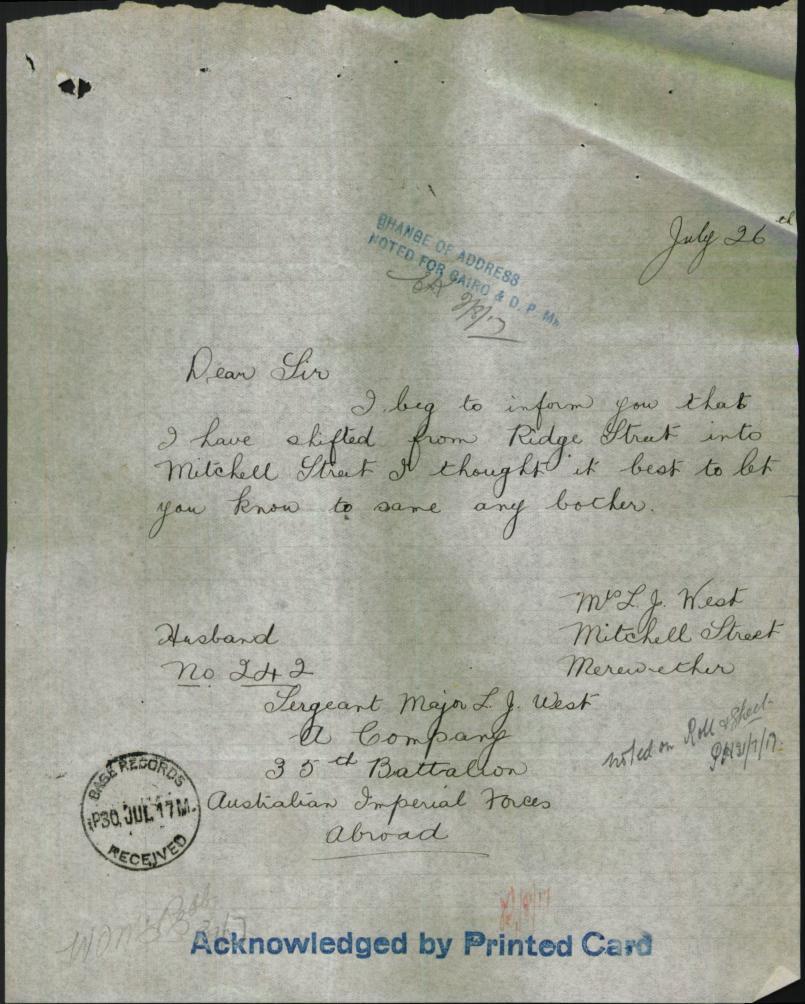 July 26th
CHANGE OF ADDRESS
NOTED FOR CAIRO & D.P.M.
2/8/17
Dear Sir
I beg to inform you that
I have shifted from Ridge Street into
Mitchell Street I thought it best to let
you know to same any bother.
Mrs L. J. West
Mitchell Street
Merewether
Husband
No 242
Sergeant Major L. J. West
A Company
35th Battralion
Australian Imperial Forces
Abroad
noted on Roll & Sheet
31/7/17
BASE RECORDS
P30. JUL. 17 M.
RECEIVED
Acknowledged by Printed Card